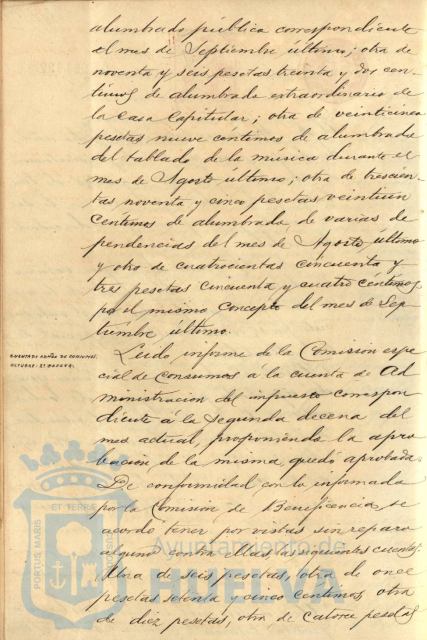 alumbrado pública correspondiente
al mes de Septiembre último; otra de
noventa y seis pesetas treinta y dos cen-
timos de alumbrado extraordinario de
la Casa Capitular; otra de veinticinco
pesetas nueve céntimos de alumbrado
del tablado de la música durante el
mes de Agosto último; otra de trescien-
tas noventa y cinco pesetas veintiun
centimos de alumbrado de varias de
pendencias del mes de Agosto último
y otro de cuatrocientas cincuenta y
tres pesetas cincuenta y cuatro céntimos
por el mismo concepto del mes de Sep-
tiembre último.
CUENTA DE ADMÓN DE CONSUMOS.
OCTUBRE. 2ª DECENA.
Leido informe de la Comision espe
cial de Consumos á la cuenta de Ad
ministracion del impuesto correspon
diente á la segunda decena del
mes actual, proponiendo la apro
bacion de la misma, quedó aprobada.
De conformidad con lo informado
por la Comision de Beneficencia, se
acordó tener por vistas sin reparo
alguno las siguientes cuentas:
Una de seis pesetas, otra de once
pesetas setenta y cinco centimos, otra
de diez pesetas, otra de catorce pesetas
PORTUS MARIS ET TERRE
Ayuntamiento de
HUELVA